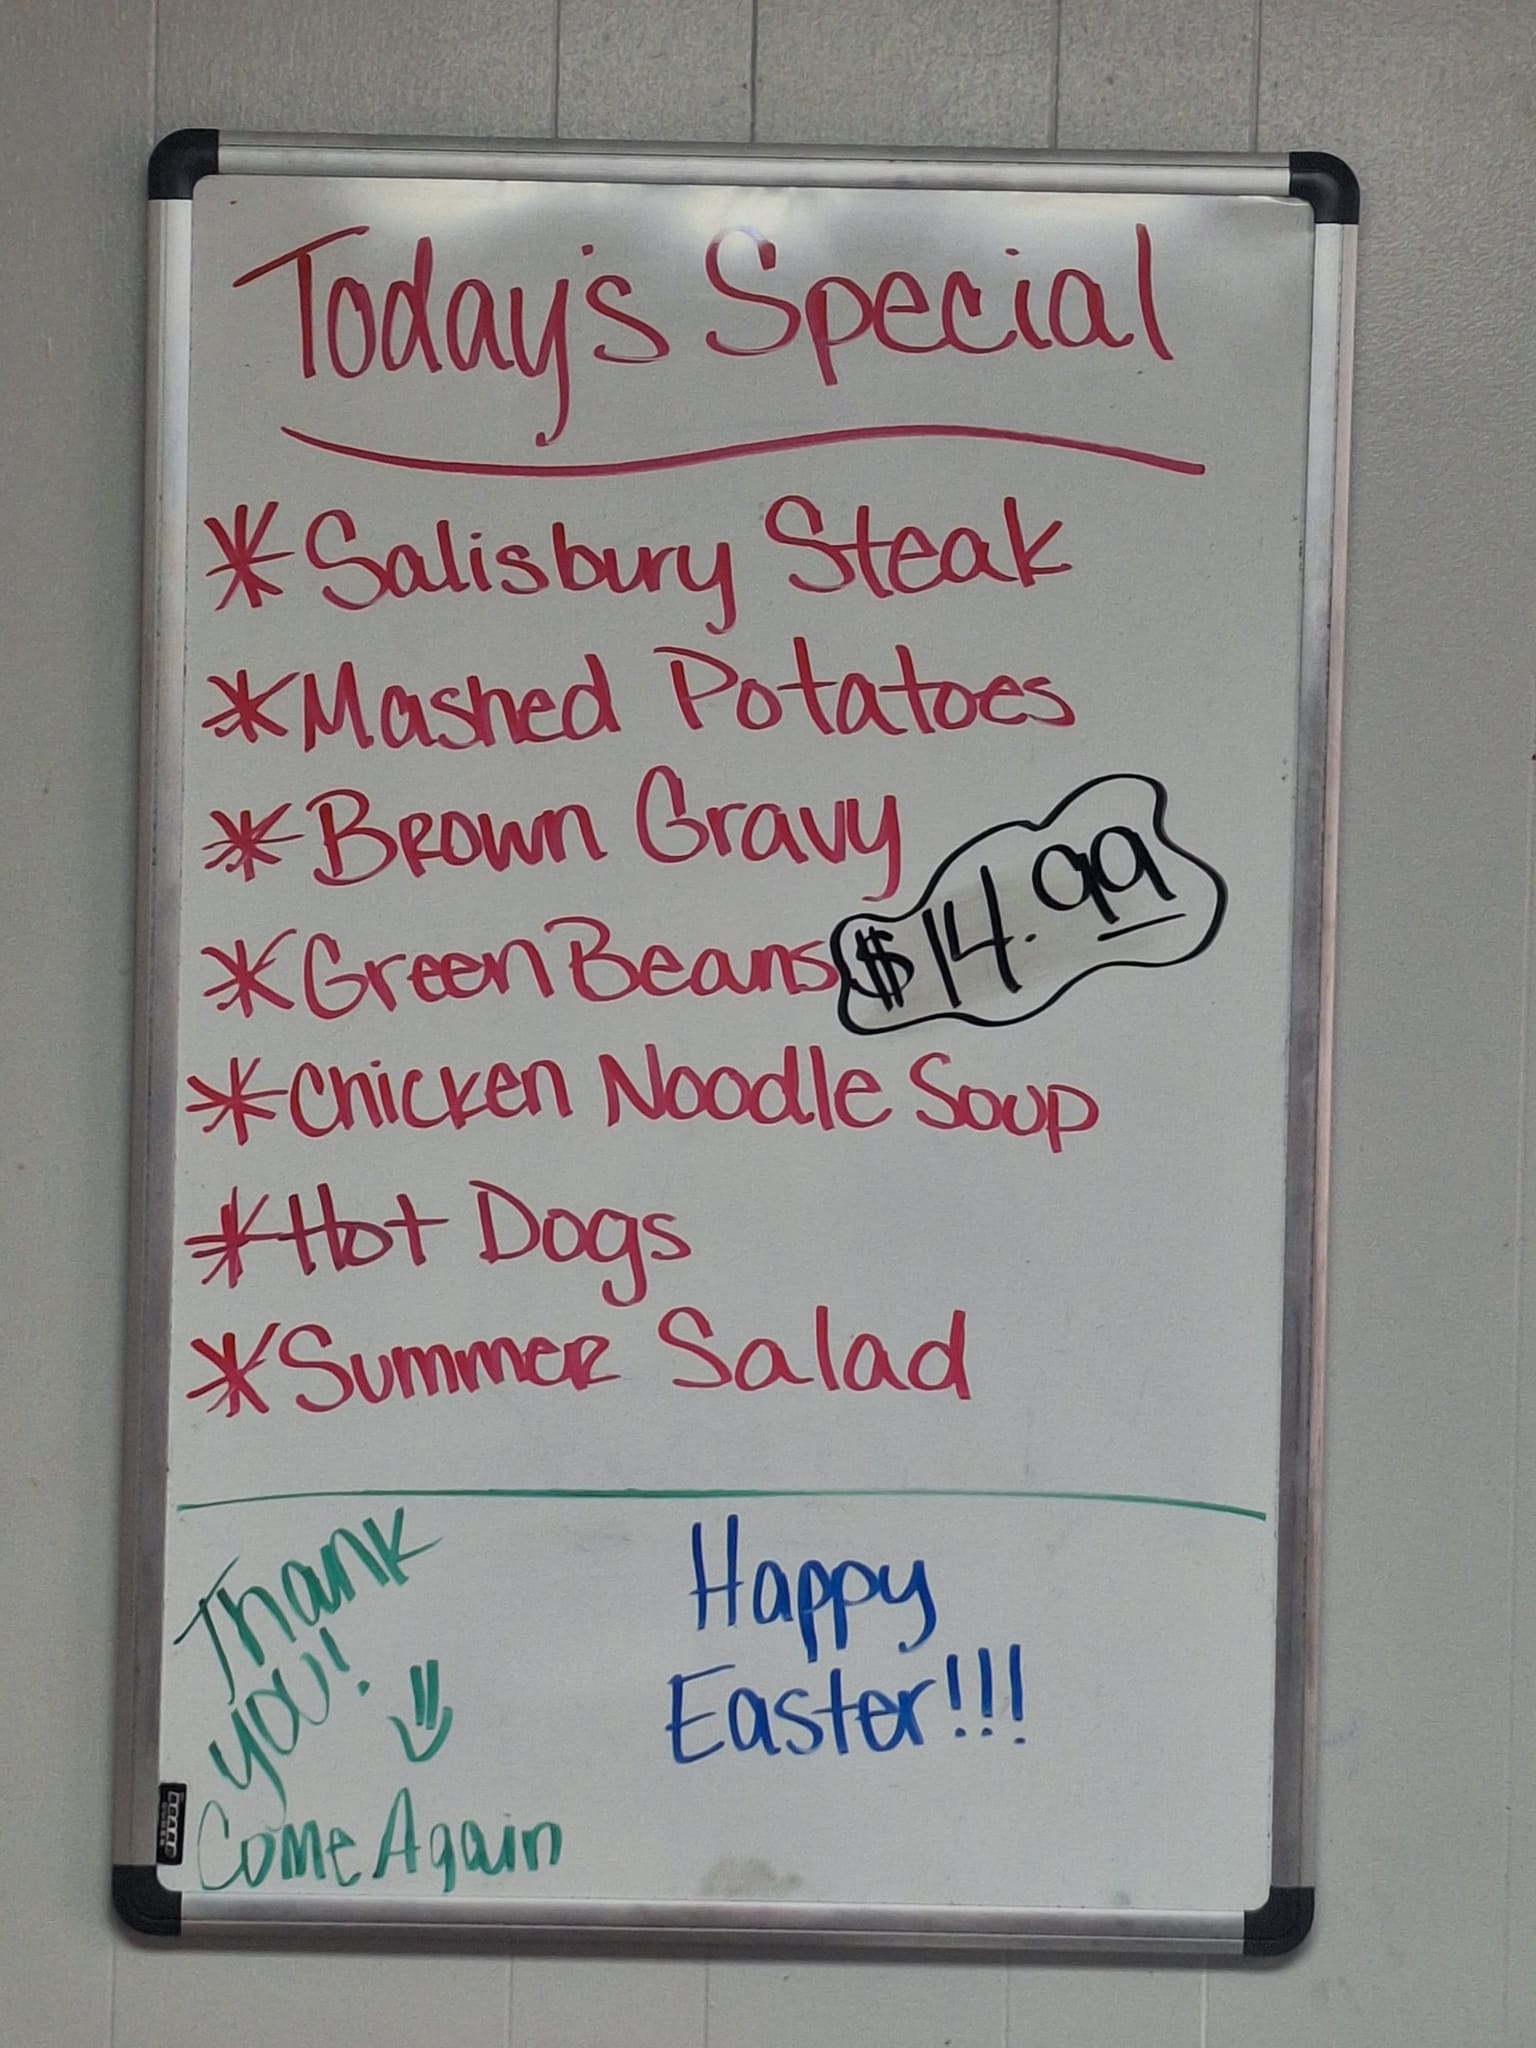 Today's Special
*Salisbury Steak
*Mashed Potatoes
*Brown Gravy
*Green Beans
$14.99
*Chicken Noodle Soup
*Hot Dogs
*Summer Salad
Thank
you!
Come Again
Happy
Easter!!!